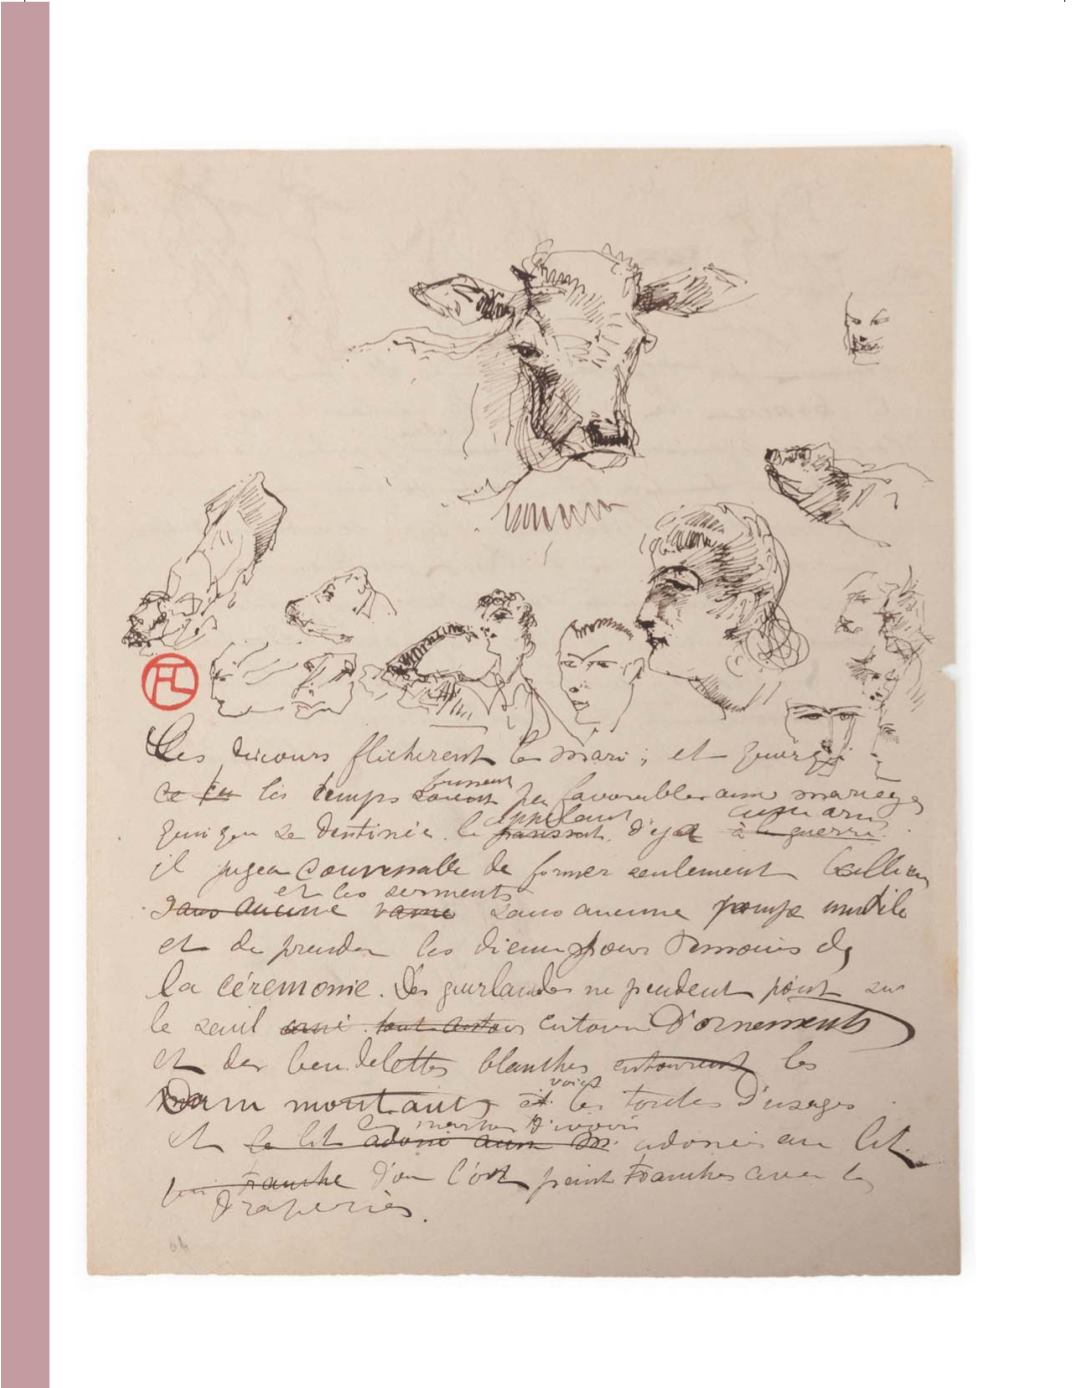 Ces discours fléchirent le mari ; et quoique
ce fu les temps soient fussent peu favorables aux mariages
quoique sa destinée le paraissait appelant déja à la guerre aux armes
il jugea convenable de former seulement
sans aucune vaine et les serments sans aucune pompe inutile
et de prendre les dieux pour témoins de
la céremonie. Des guirlandes ne pendent point sur
le seuil orné tout autour entouré D'ornements
et des bendelettes blanches entourent les
montants et les torches d'usages
et le lit adossé au lit
franche d'un l'or point franches avec les
draperies.